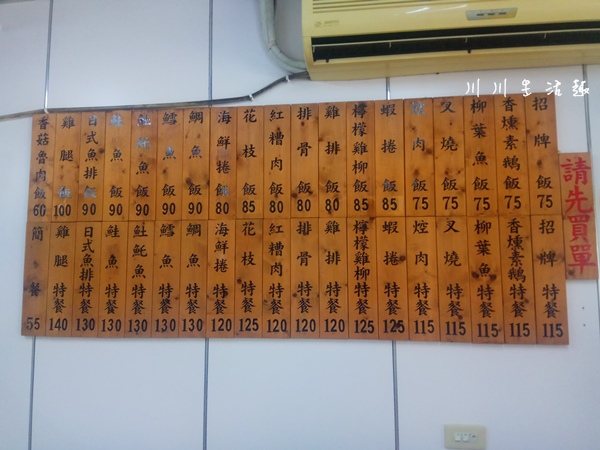 川川生活趣
招牌飯75
香燻素鵝飯75
柳葉魚飯75
叉燒飯75
焢肉飯75
蝦捲飯85
檸檬雞柳飯85
雞排飯80
排骨飯80
紅糟肉飯80
花枝飯85
海鮮捲飯80
鯛魚飯90
鱈魚飯90
魠魚飯90
鮭魚飯90
日式魚排飯90
雞腿飯100
香菇魯肉飯60
招牌特餐115
香燻素鵝特餐115
柳葉魚特餐115
叉燒特餐115
焢肉特餐115
蝦捲特餐125
檸檬雞柳特餐125
雞排特餐120
排骨特餐120
紅糟肉特餐120
花枝特餐125
海鮮捲特餐120
鯛魚特餐130
鱈魚特餐130
魠魚特餐130
鮭魚特餐130
日式魚排特餐130
雞腿特餐140
簡餐55
請先買單